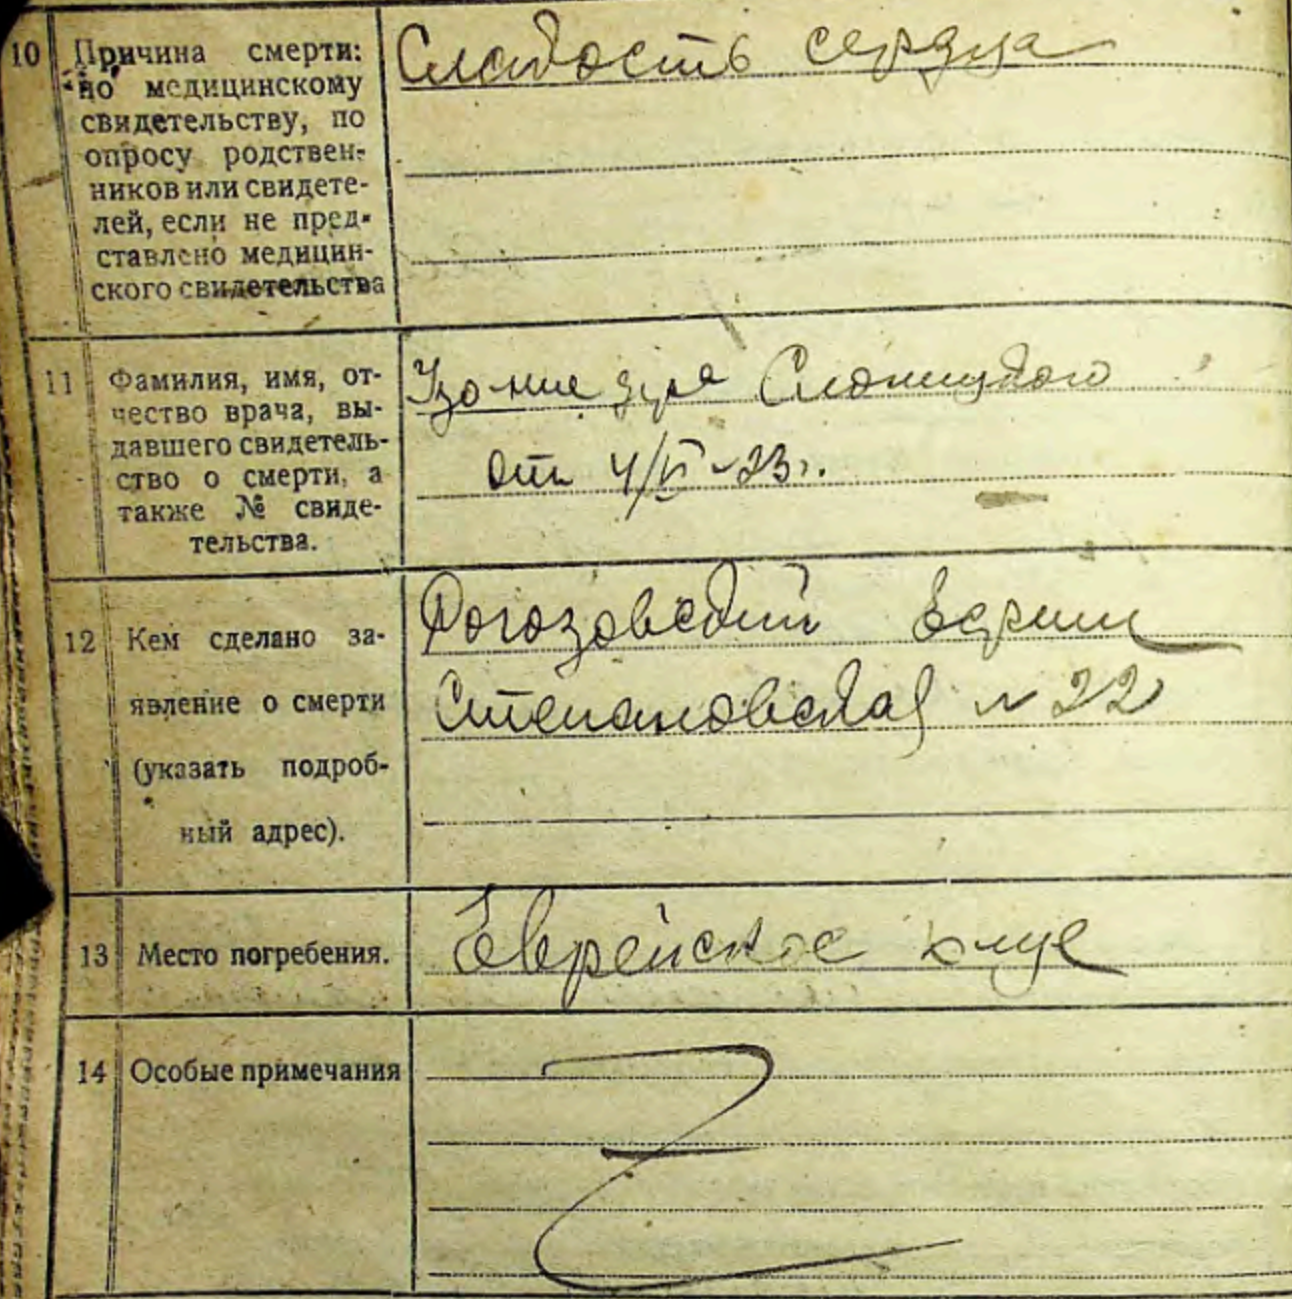 10 Причина смерти: Слабость сердца
по медицинскому
свидетельству, по
опросу родствен-
ников или свидете-
лей, если не пред-
ставлено медицин-
ского свидетельства
11 Фамилия, имя, от-
чество врача, вы-
давшего свидетель-
ство о смерти, а
также № свиде-
тельства.
Уд-ние д-ра Слоницкого
от 4/VI-23г.
12 Кем сделано за-
явление о смерти
(указать подроб-
ный адрес).
Рогозовский
Степановская № 22
13 Место погребения. Еврейское клад
14 Особые примечания